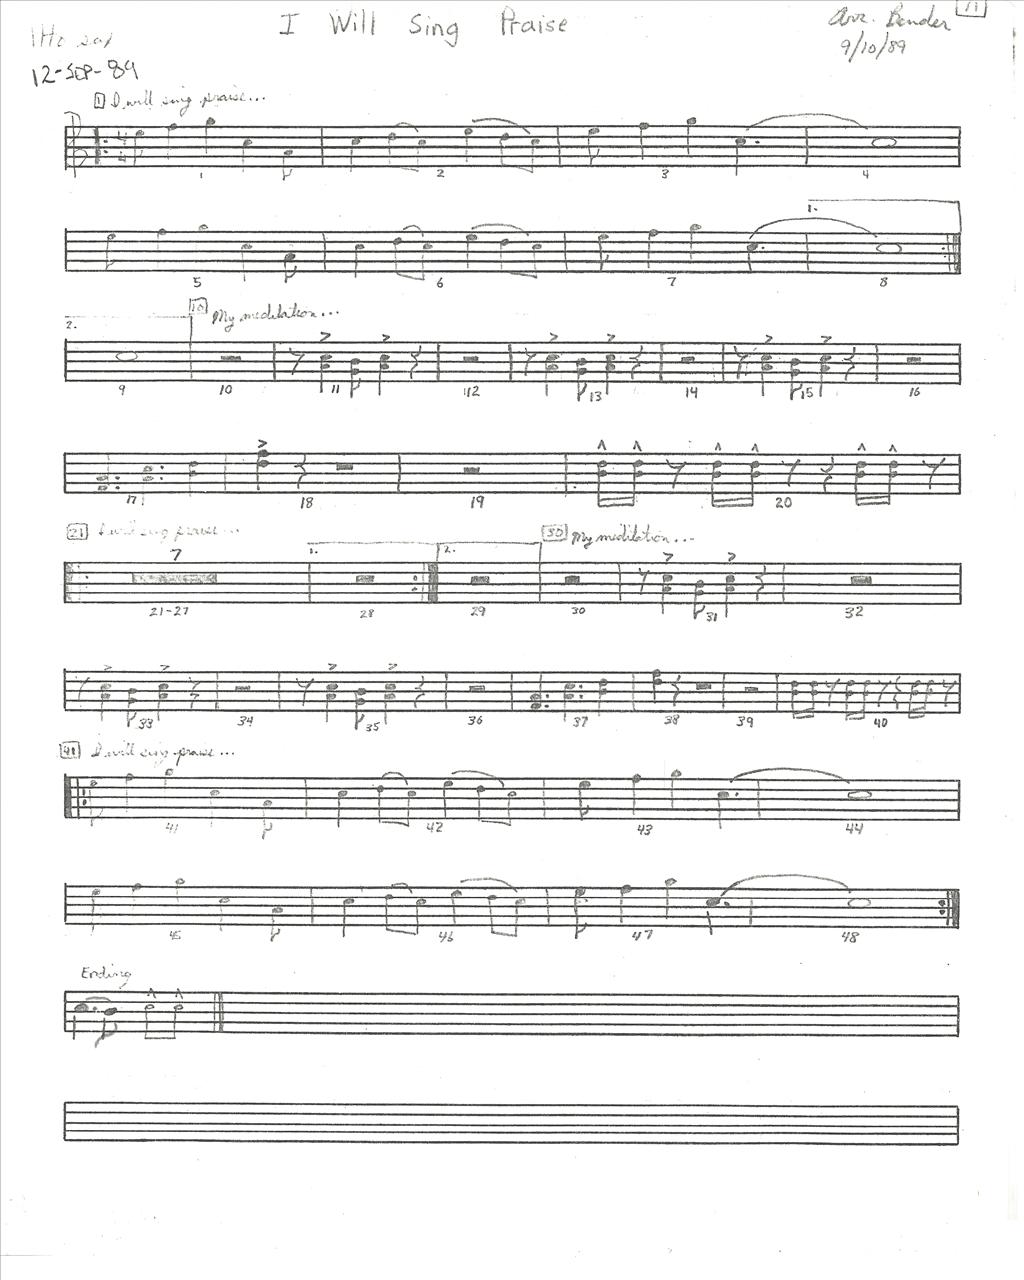 I Will Sing Praise
Arr. Bender
9/10/89
11
Alto sax
12-SEP-89
1 I will sing praise...
1 2 3 4
1.
5 6 7 8
2. 10 My meditation...
9 10 11 12 13 14 15 16
17 18 19 20
21 I will sing praise...
7 1. 2. 30 My meditation...
21-27 28 29 30 31 32
33 34 35 36 37 38 39 40
41 I will sing praise...
41 42 43 44
45 46 47 48
Ending